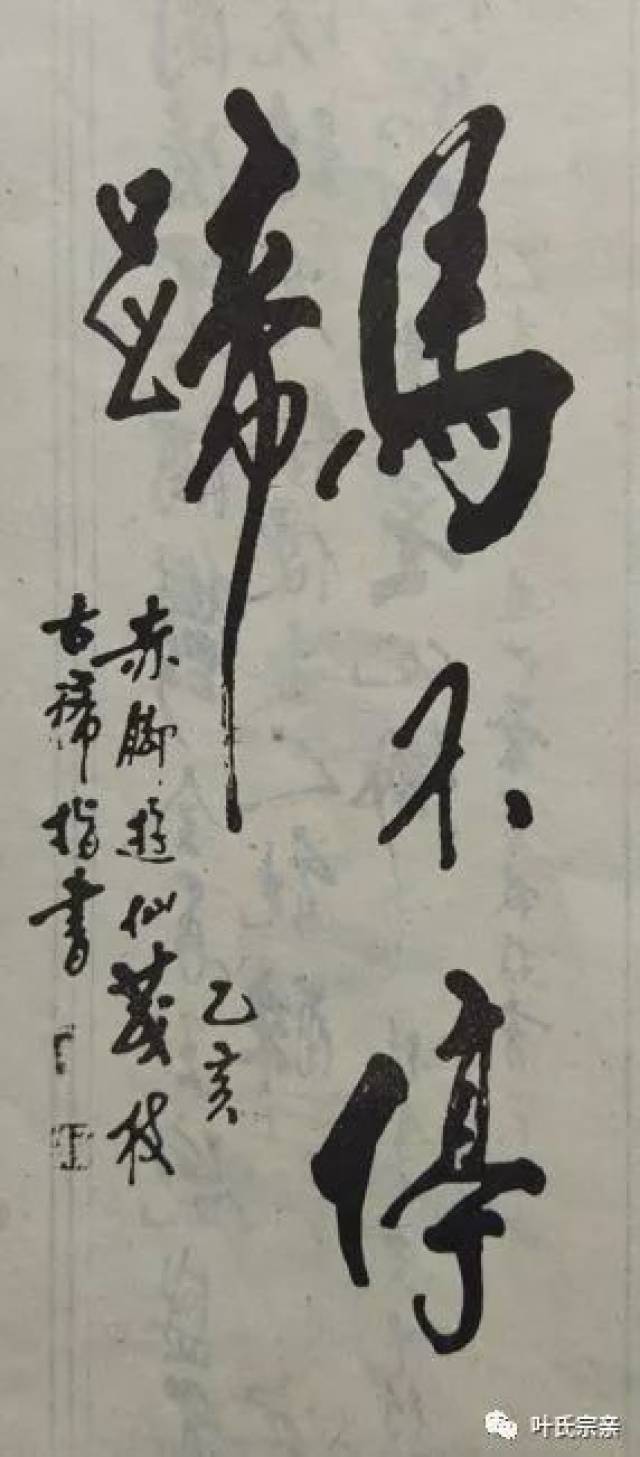 馬不停
蹄
乙亥
赤脚遊仙茂枝
古稀指書
叶氏宗亲